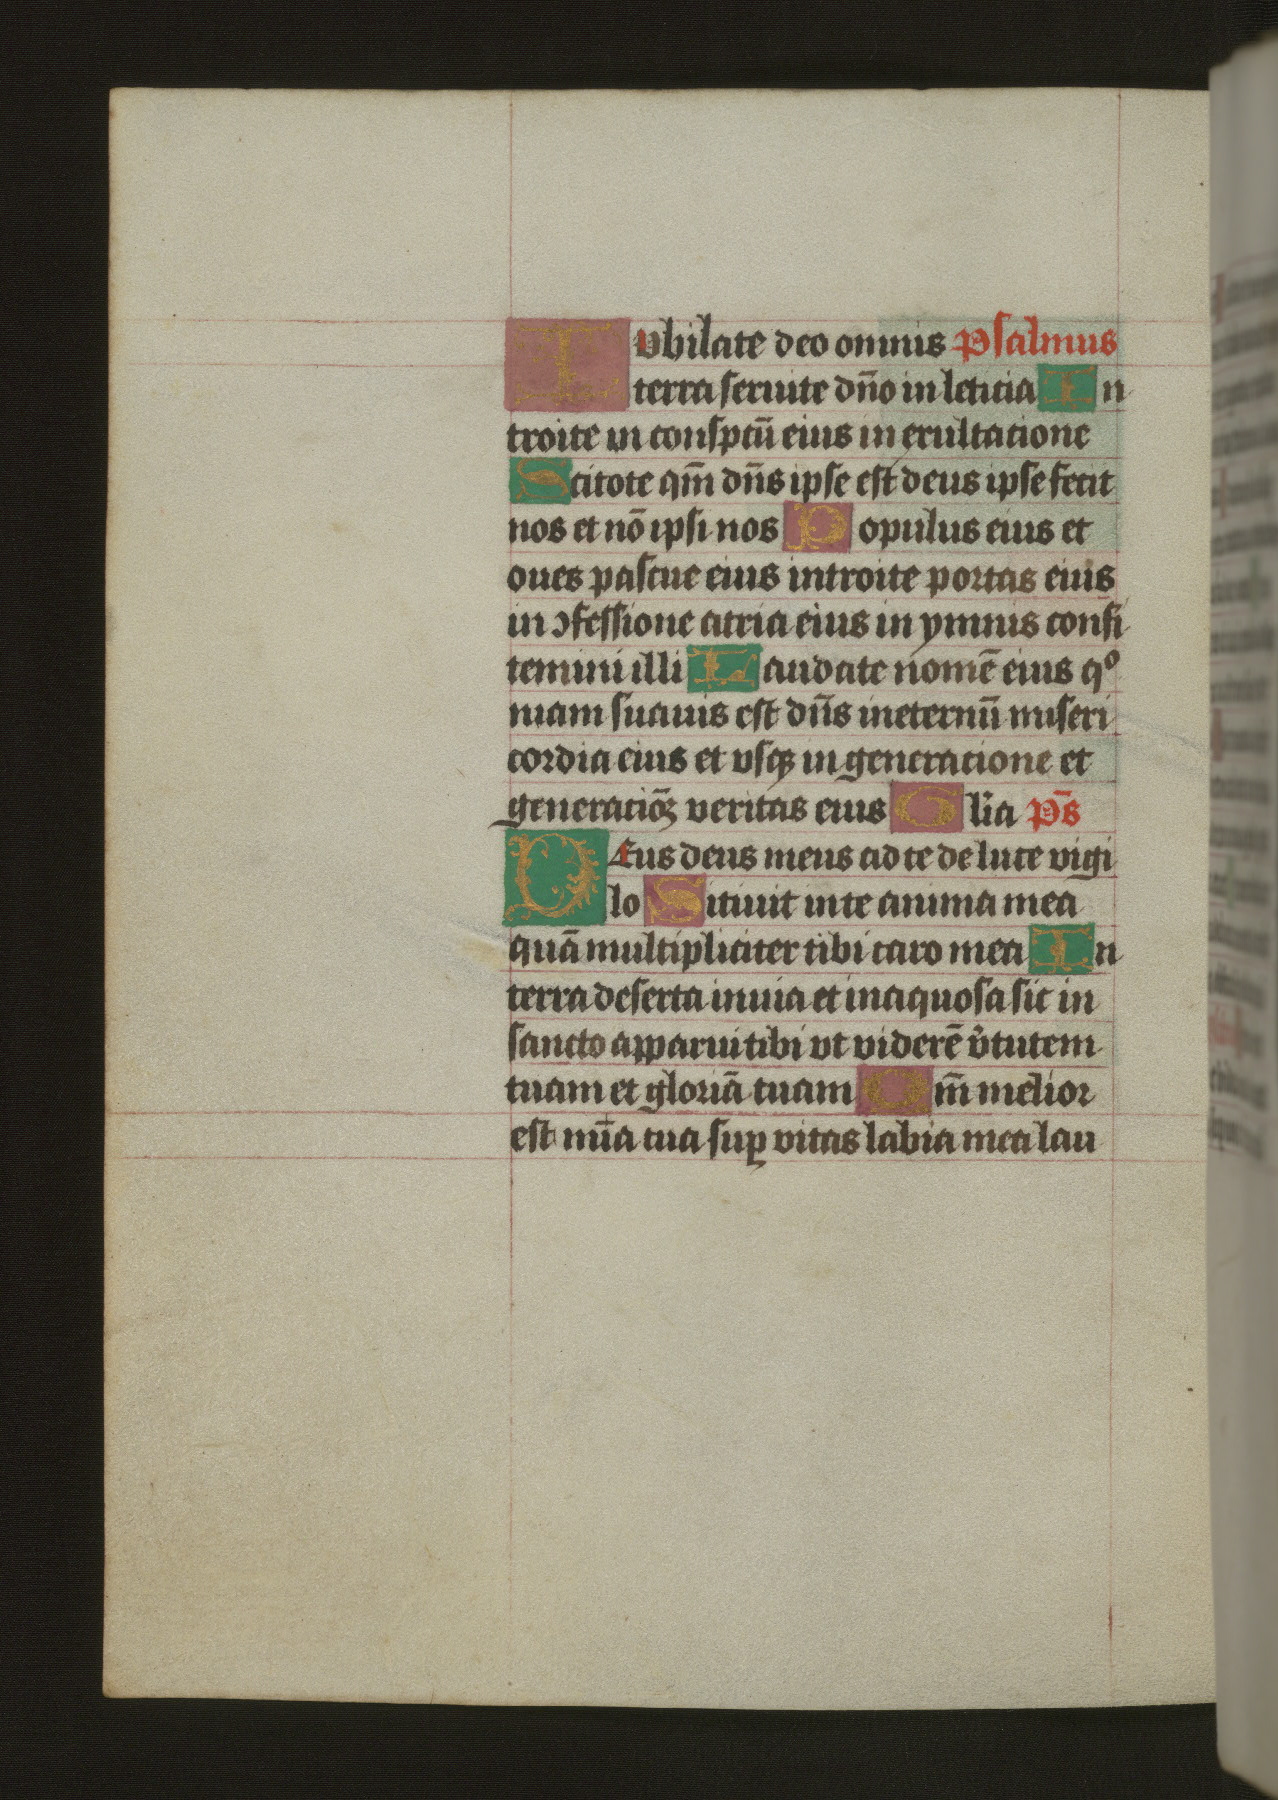 Iubilate deo omnis Psalmus
terra seruite dño in leticia In
troite in conspctū eius in exultacione
Scitote qm̄ dn̄s ipse est deus ipse fecit
nos et nō ipsi nos Populus eius et
oues pascue eius introite portas eius
in ɔfessione atria eius in ymnis confi
temini illi Laudate nomē eius qº
niam suauis est dn̄s ineternū miseri
cordia eius et vsqꝫ in generacione et
generacioꝫ veritas eius Gl̄ia p̄s
Deus deus meus ad te de luce vigi
lo Sitiuit in te anima mea
quā multipliciter tibi caro mea In
terra deserta inuia et inaquosa sic in
sancto apparui tibi vt viderē v̓tutem
tuam et gloriā tuam Qm̄ melior
est mīa tua suꝑ vitas labia mea lau